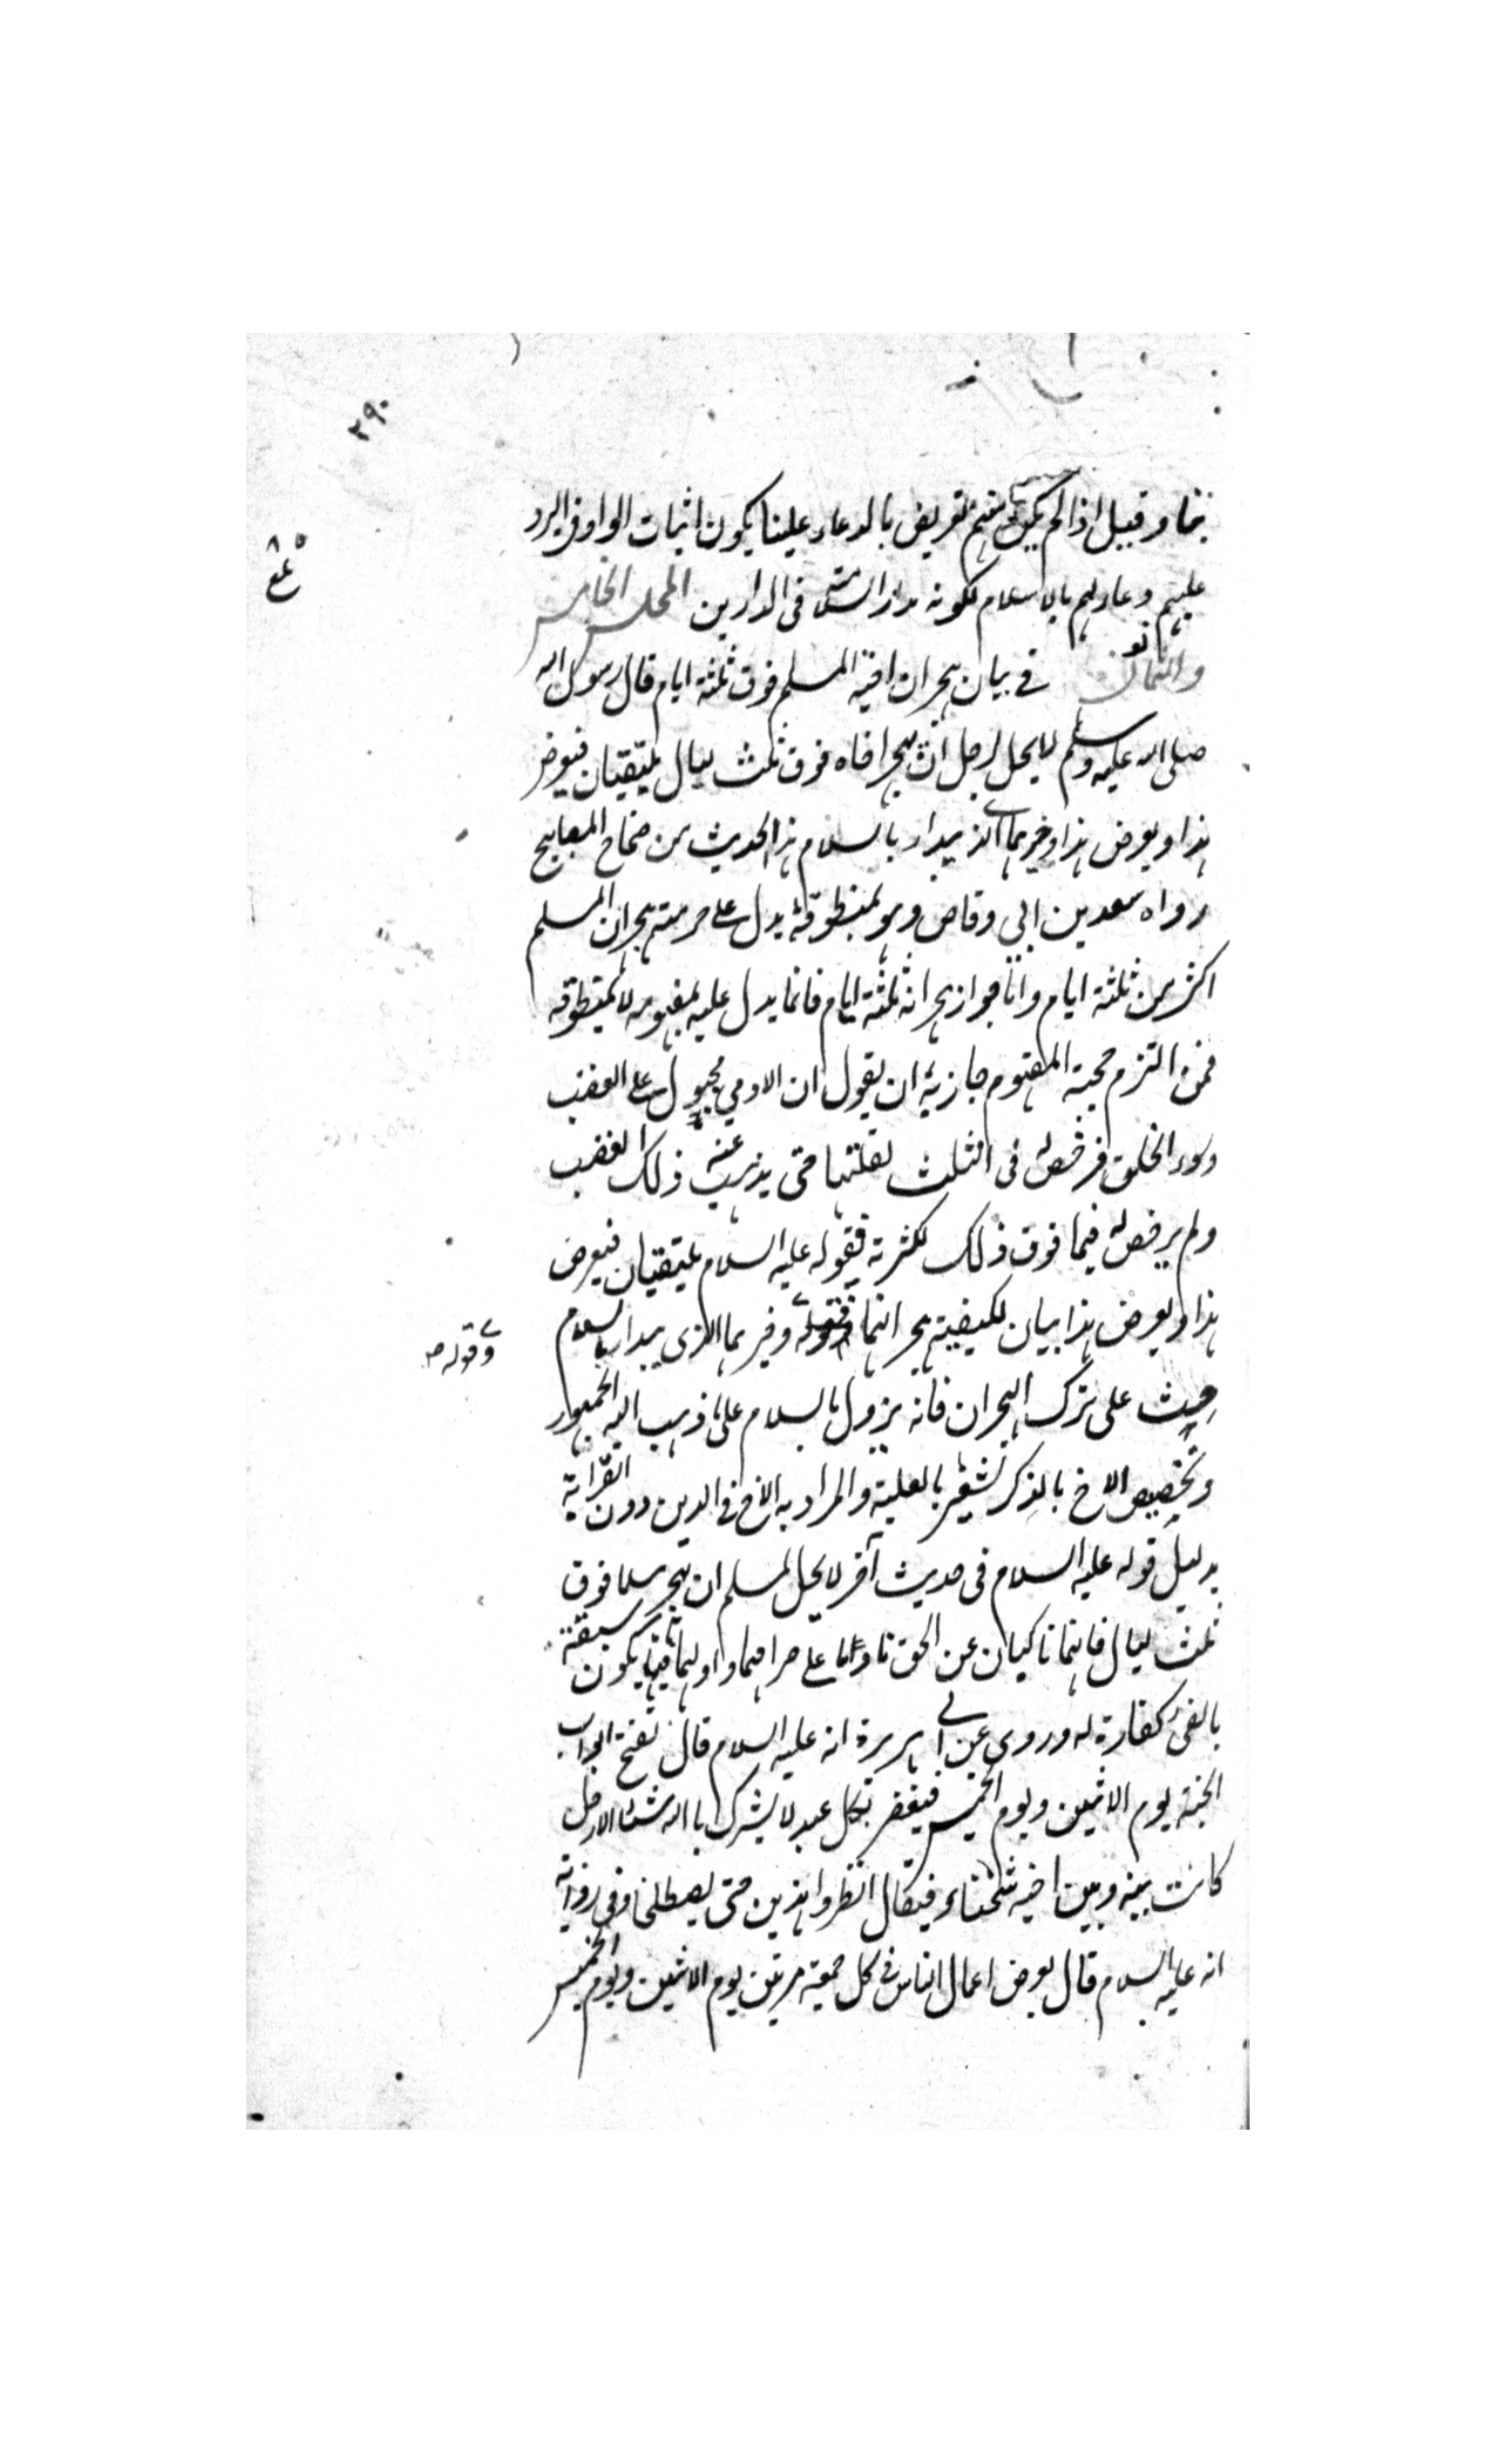 ٢٩٠
بينما وقيل اذا لم يكن منهم تعريض بالدعاء علينا يكون اثبات الواو في الرد
عليهم دعاء لهم بالاسلام لكونه مدار السلامة في الدارين المجلس الخامس
والثمانون في بيان هجران اخيه المسلم فوق ثلثة ايام قال رسول الله
صلى الله عليه وسلم لا يحل لرجل ان يهجر اخاه فوق ثلث ليال يلتقيان فيعرض
هذا ويعرض هذا وخيرهما الذي يبدأ بالسلام هذا الحديث من صحاح المصابيح
رواه سعد بن ابي وقاص وهو بمنطوقه يدل على حرمة هجران المسلم
اكثر من ثلثة ايام واما جواز هجرانه ثلثة ايام فانما يدل عليه بمفهومه لا بمنطوقه
فمن التزم حجية المفهوم جاز له ان يقول ان الادمي مجبول على الغضب
وسوء الخلق فرخص له في الثلث لقلتها حتى يذهب عنه ذلك الغضب
ولم يرخص له فيما فوق ذلك لكثرته فقوله عليه السلام يلتقيان فيعرض
هذا ويعرض هذا بيان لكيفية هجرانهما وقوله وخيرهما الذي يبدأ بالسلام
وقوله صح
حث على ترك الهجران فانه يزول بالسلام على ما ذهب اليه الجمهور
وتخصيص الاخ بالذكر يشعر بالعلية والمراد به الاخ في الدين دون القرابة
بدليل قوله عليه السلام في حديث آخر لا يحل لمسلم ان يهجر مسلما فوق
ثلث ليال فانهما ناكبان عن الحق ما داما على صرامهما واولهما فيئا يكون سبقه
بالفئ كفارة له وروى عن ابي هريرة انه عليه السلام قال تفتح ابواب
الجنة يوم الاثنين ويوم الخميس فيغفر لكل عبد لا يشرك بالله شيئا الا رجل
كانت بينه وبين اخيه شحناء فيقال انظروا هذين حتى يصطلحا وفي رواية
انه عليه السلام قال يعرض اعمال الناس في كل جمعة مرتين يوم الاثنين ويوم الخميس